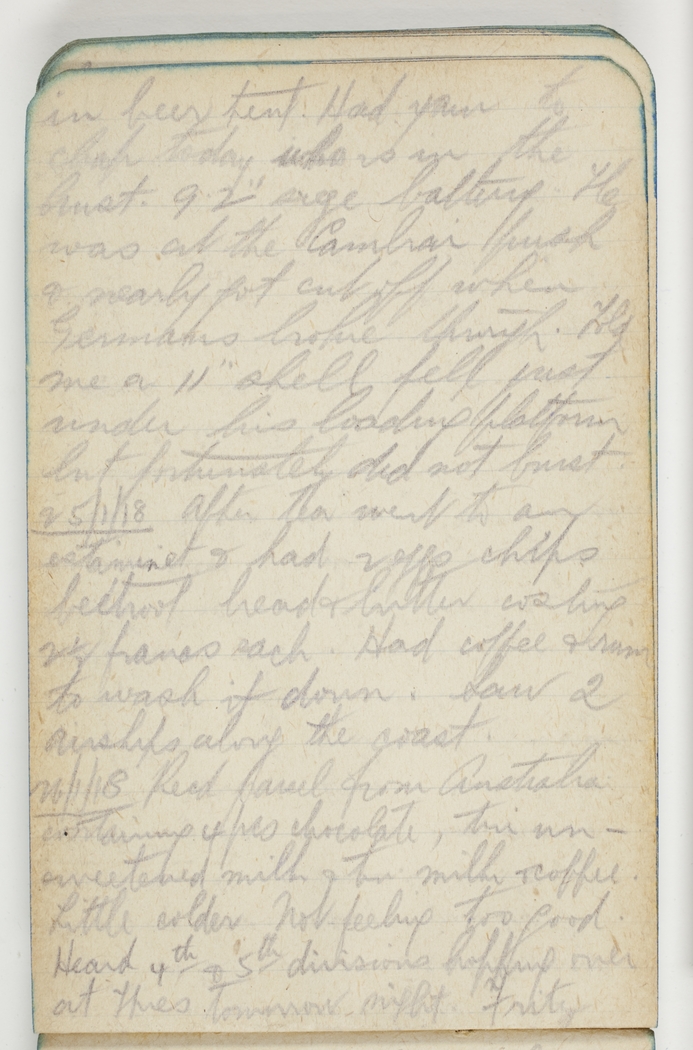 in beer tent. Had yarn to
chap today who is in the
Aust. 9.2" siege battery. He
was at the Cambrai push
& nearly got cut off when
Germans broke through. Told
me a 11" shell fell just
under his loading platform
but fortunately did not burst.
25/1/18 After tea went to an
estaminet & had 2 eggs chips
beetroot bread & butter costing
2½ francs each. Had coffee & rum
to wash it down. Saw 2
airships along the coast.
26/1/18 Recd parcel from Australia
containing 4 pcs chocolate, tin un-
sweetened milk & tin milk & coffee.
Little colder. Not feeling too good.
Heard 4th & 5th divisions hopping over
at Ypres tomorrow night. Fritz